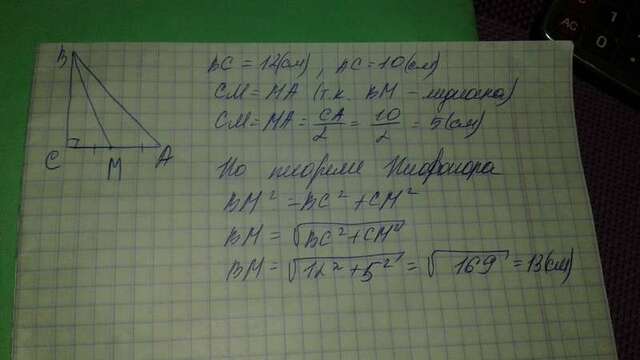 BC = 12(см), AC = 10(см)
CM = MA (т.к. BM – медиана)
CM = MA = CA/2 = 10/2 = 5(см)
По теореме Пифагора
BM² = BC² + CM²
BM = √BC² + CM²
BM = √12² + 5² = √169 = 13(см)
B
C
M
A
1
AC
0